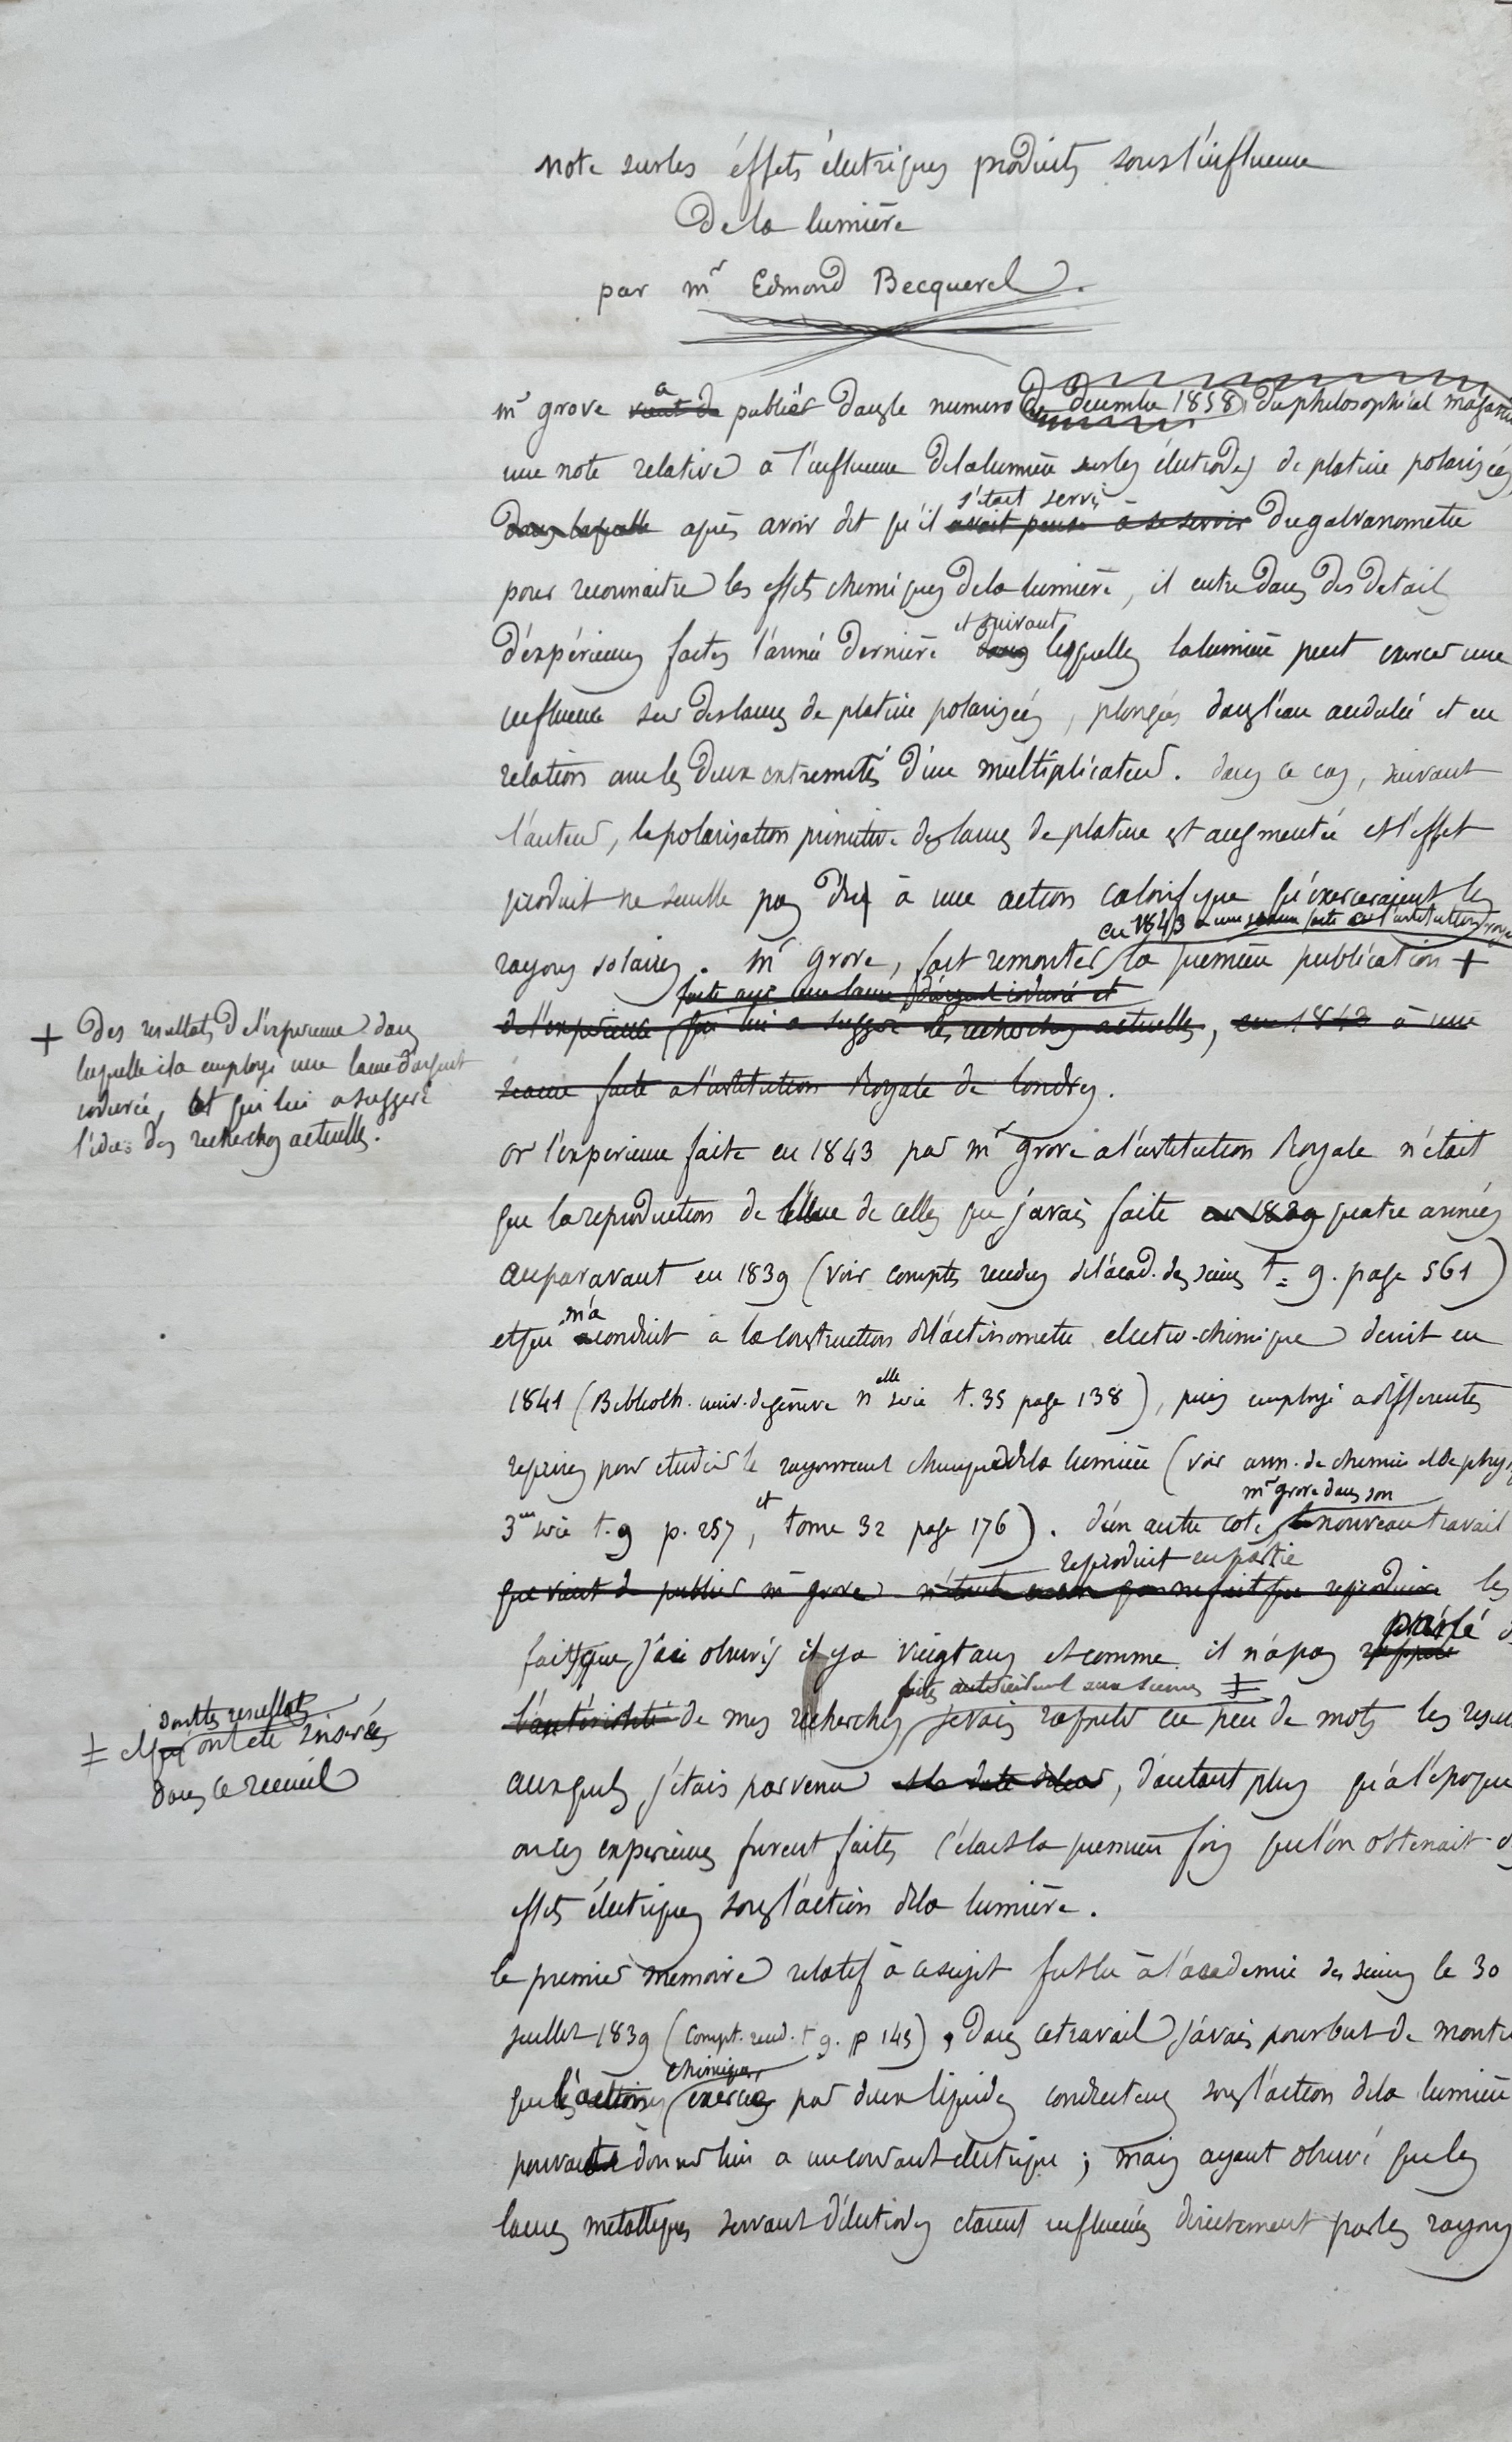 note sur les éffets électriques produits sous l'influence
de la lumière
par mr Edmond Becquerel.
a
mr grove vient de publiér dans le numero de decembre 1858 du philosophical magazine
une note relative à l'influence de la lumière sur les électrodes de platine polarisées
s'était servi
dans laquelle après avoir dit qu'il avait pensé à se servir du galvanometre
pour reconnaitre les effets chimiques de la lumière, il entre dans des details
et suivant
d'éxpériences faites l'année dernière dans lesquelles la lumière peut exercer une
influence sur des lames de platine polarisées, plongées dans l'eau acidulée et en
relation avec les deux extremités d'un multiplicateur. dans ce cas, suivant
l'auteur, la polarisation primitive des lames de platine est augmentée et l'effet
produit ne semble pas dû à une action calorifique qu'éxerceraient les
en 1843 a une séance faite a l'institution roya
rayons solaires. mr grove, fait remonter la première publication +
faite avec une lame d'argent ioduré et
de l'expérience qui lui a suggéré les recherches actuelles, en 1843 à une
séance faite a l'institution Royale de londres.
+ des resultats de l'expérience dans
laquelle il a employé une lame d'argent
iodurée, et qui lui a suggeré
l'idée des recherches actuelles.
or l'experience faite en 1843 par mr grove a l'institution Royale n'était
que la reproduction de l'une de celles que j'avais faite en 1839 quatre années
auparavant en 1839 (voir comptes rendus de l'acad. des sciences t = 9. page 561)
m'a
et qui a conduit à la construction de l'actinometre electro-chimique décrit en
elle
1841 (Biblioth. univ. de genève n série t. 35 page 138), puis employé a differentes
reprises pour etudier le rayonnement chimique de la lumière (voir ann. de chimie et de phys
mr grove dans son
et
3me série t. 9 p. 257, tome 32 page 176). d'un autre coté, le nouveau travail
reproduit en partie
que vient de publier mr grove ne fait que reproduire les
parlé d
faits que j'ai observés il y a vingt ans et comme il n'a pas rappelé
faites antérieurement aux siennes ‡
l'antériorité de mes recherches je vais rappeler en peu de mots les resul
dont les resultats
‡ et qui ont été insérés
dans ce recueil
auxquels j'étais parvenu et la date de leur, d'autant plus qu'a l'époque
ou ces expériences furent faites c'était la premiere fois que l'on obtenait d
effets électriques sous l'action de la lumière.
le premier mémoire relatif à ce sujet fut lu à l'academie des sciences le 30
juillet 1839 (Compt. rend. t 9. p 145). dans ce travail j'avais pour but de montr
chimiques
que les actions exercées par deux liquides conducteurs sous l'action de la lumiere
pouvait donner lieu a un courant electrique ; mais ayant observé que les
lames metalliques servant d'électrodes etaient influencées directement par les rayons